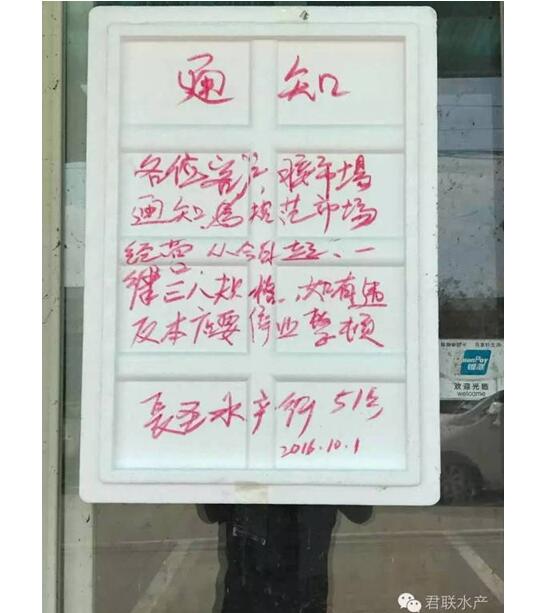 通 知
各位客户,接市场
通知,为规范市场
经营 从今日起、一
律三人 如有违
反本店要停业整顿
水产行 51号
2016.10.1
UnionPay
银联
欢迎光临
welcome
君联水产